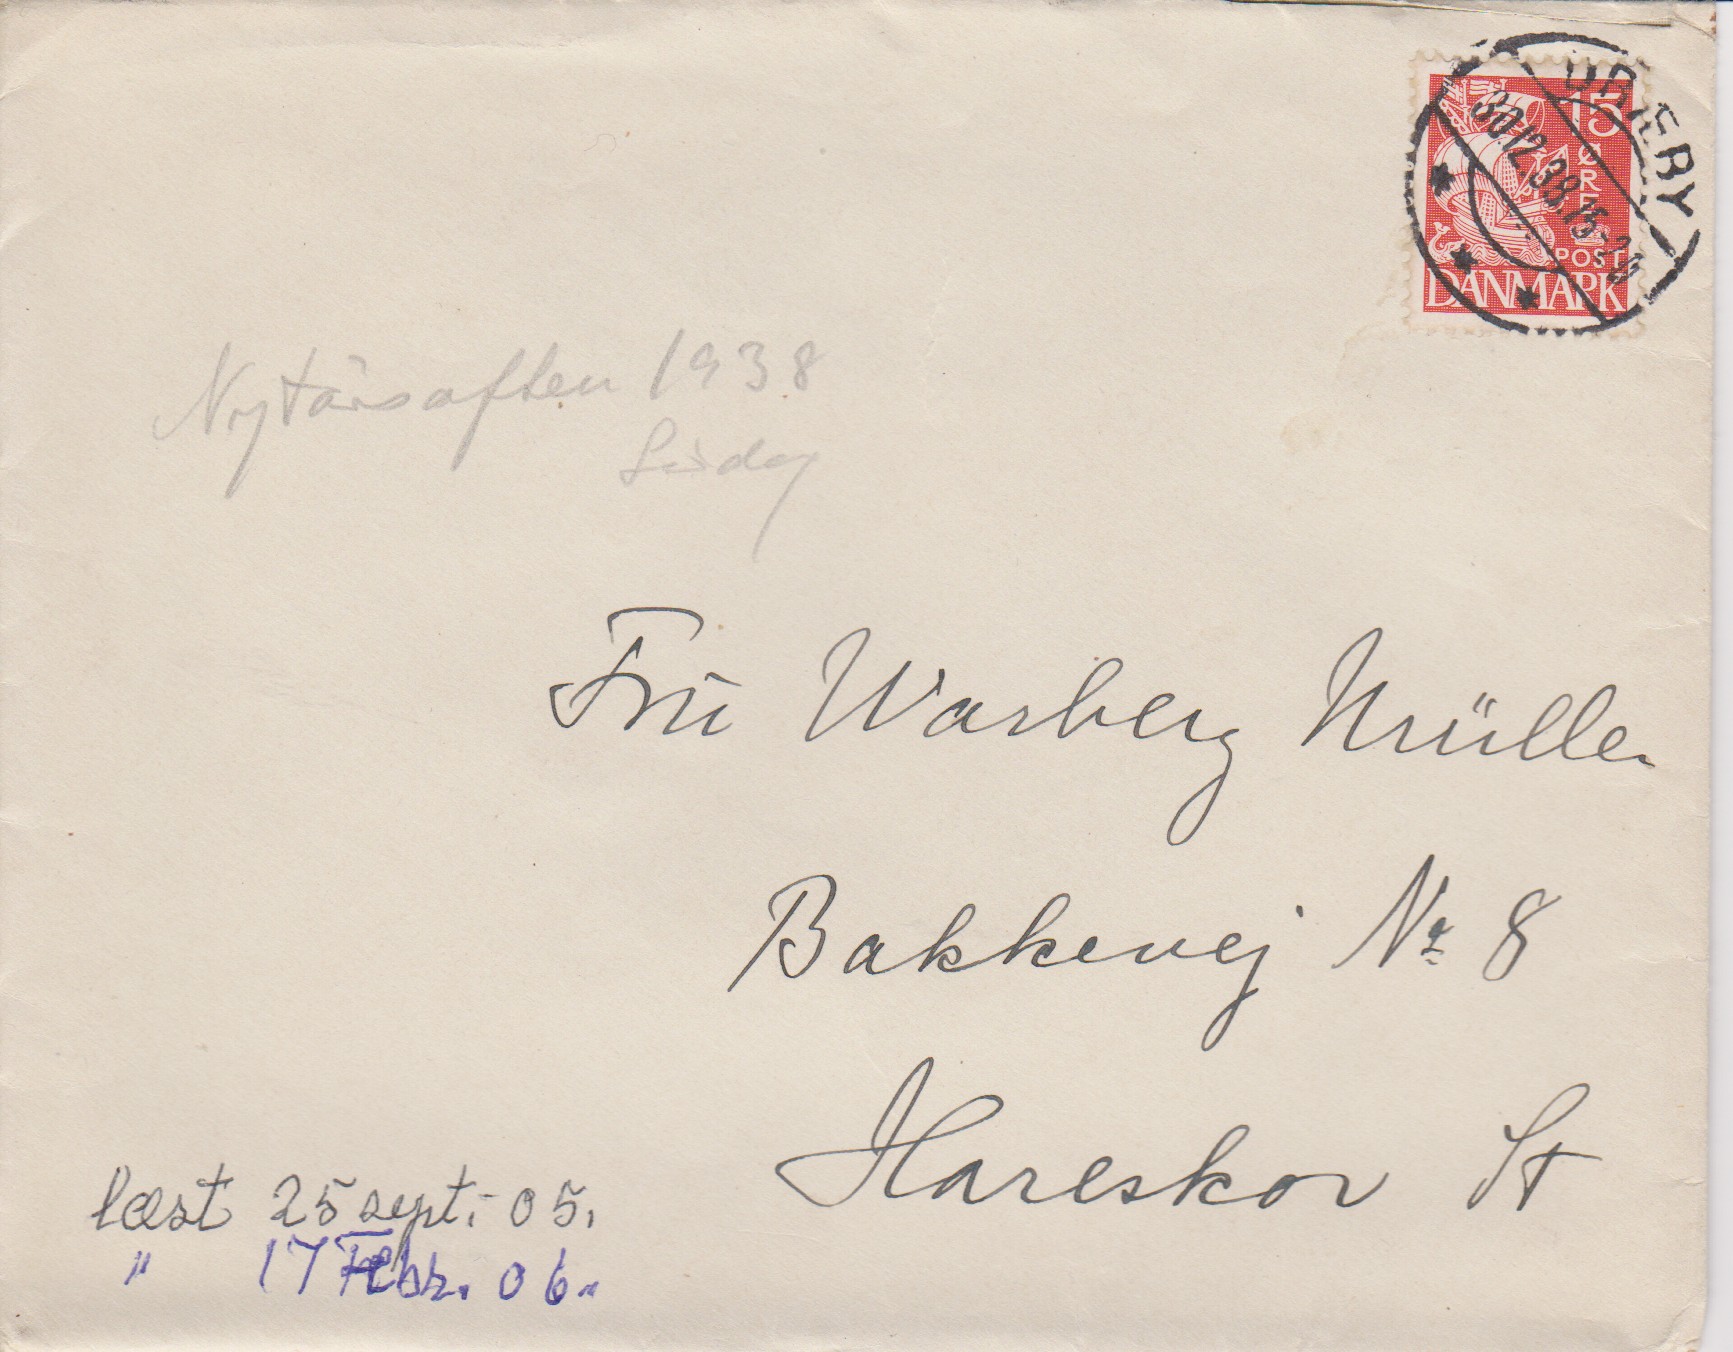 15
ØRE
POST
DANMARK
DRÆBY
30.12.38.15-20
Nytårsaften 1938
Fru Warberg Müller
Bakkevej No 8
Hareskov St
læst 25 sept. - 05.
" 17 Febr. 06.